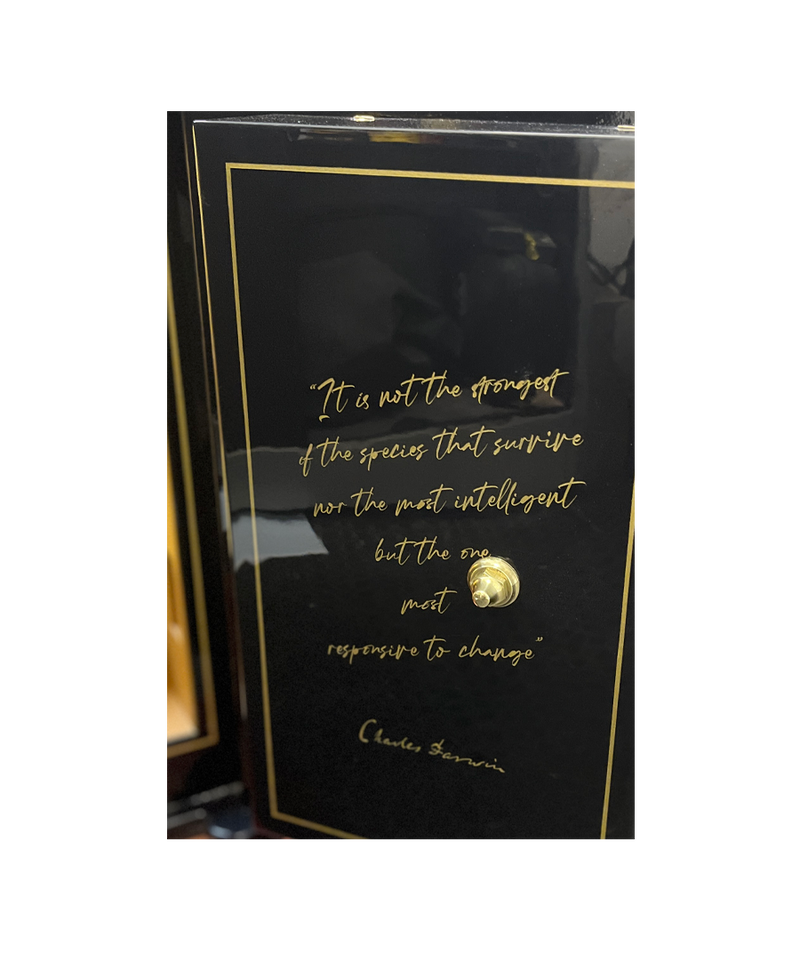 “It is not the strongest
of the species that survive
nor the most intelligent
but the one
most
responsive to change”
Charles Darwin